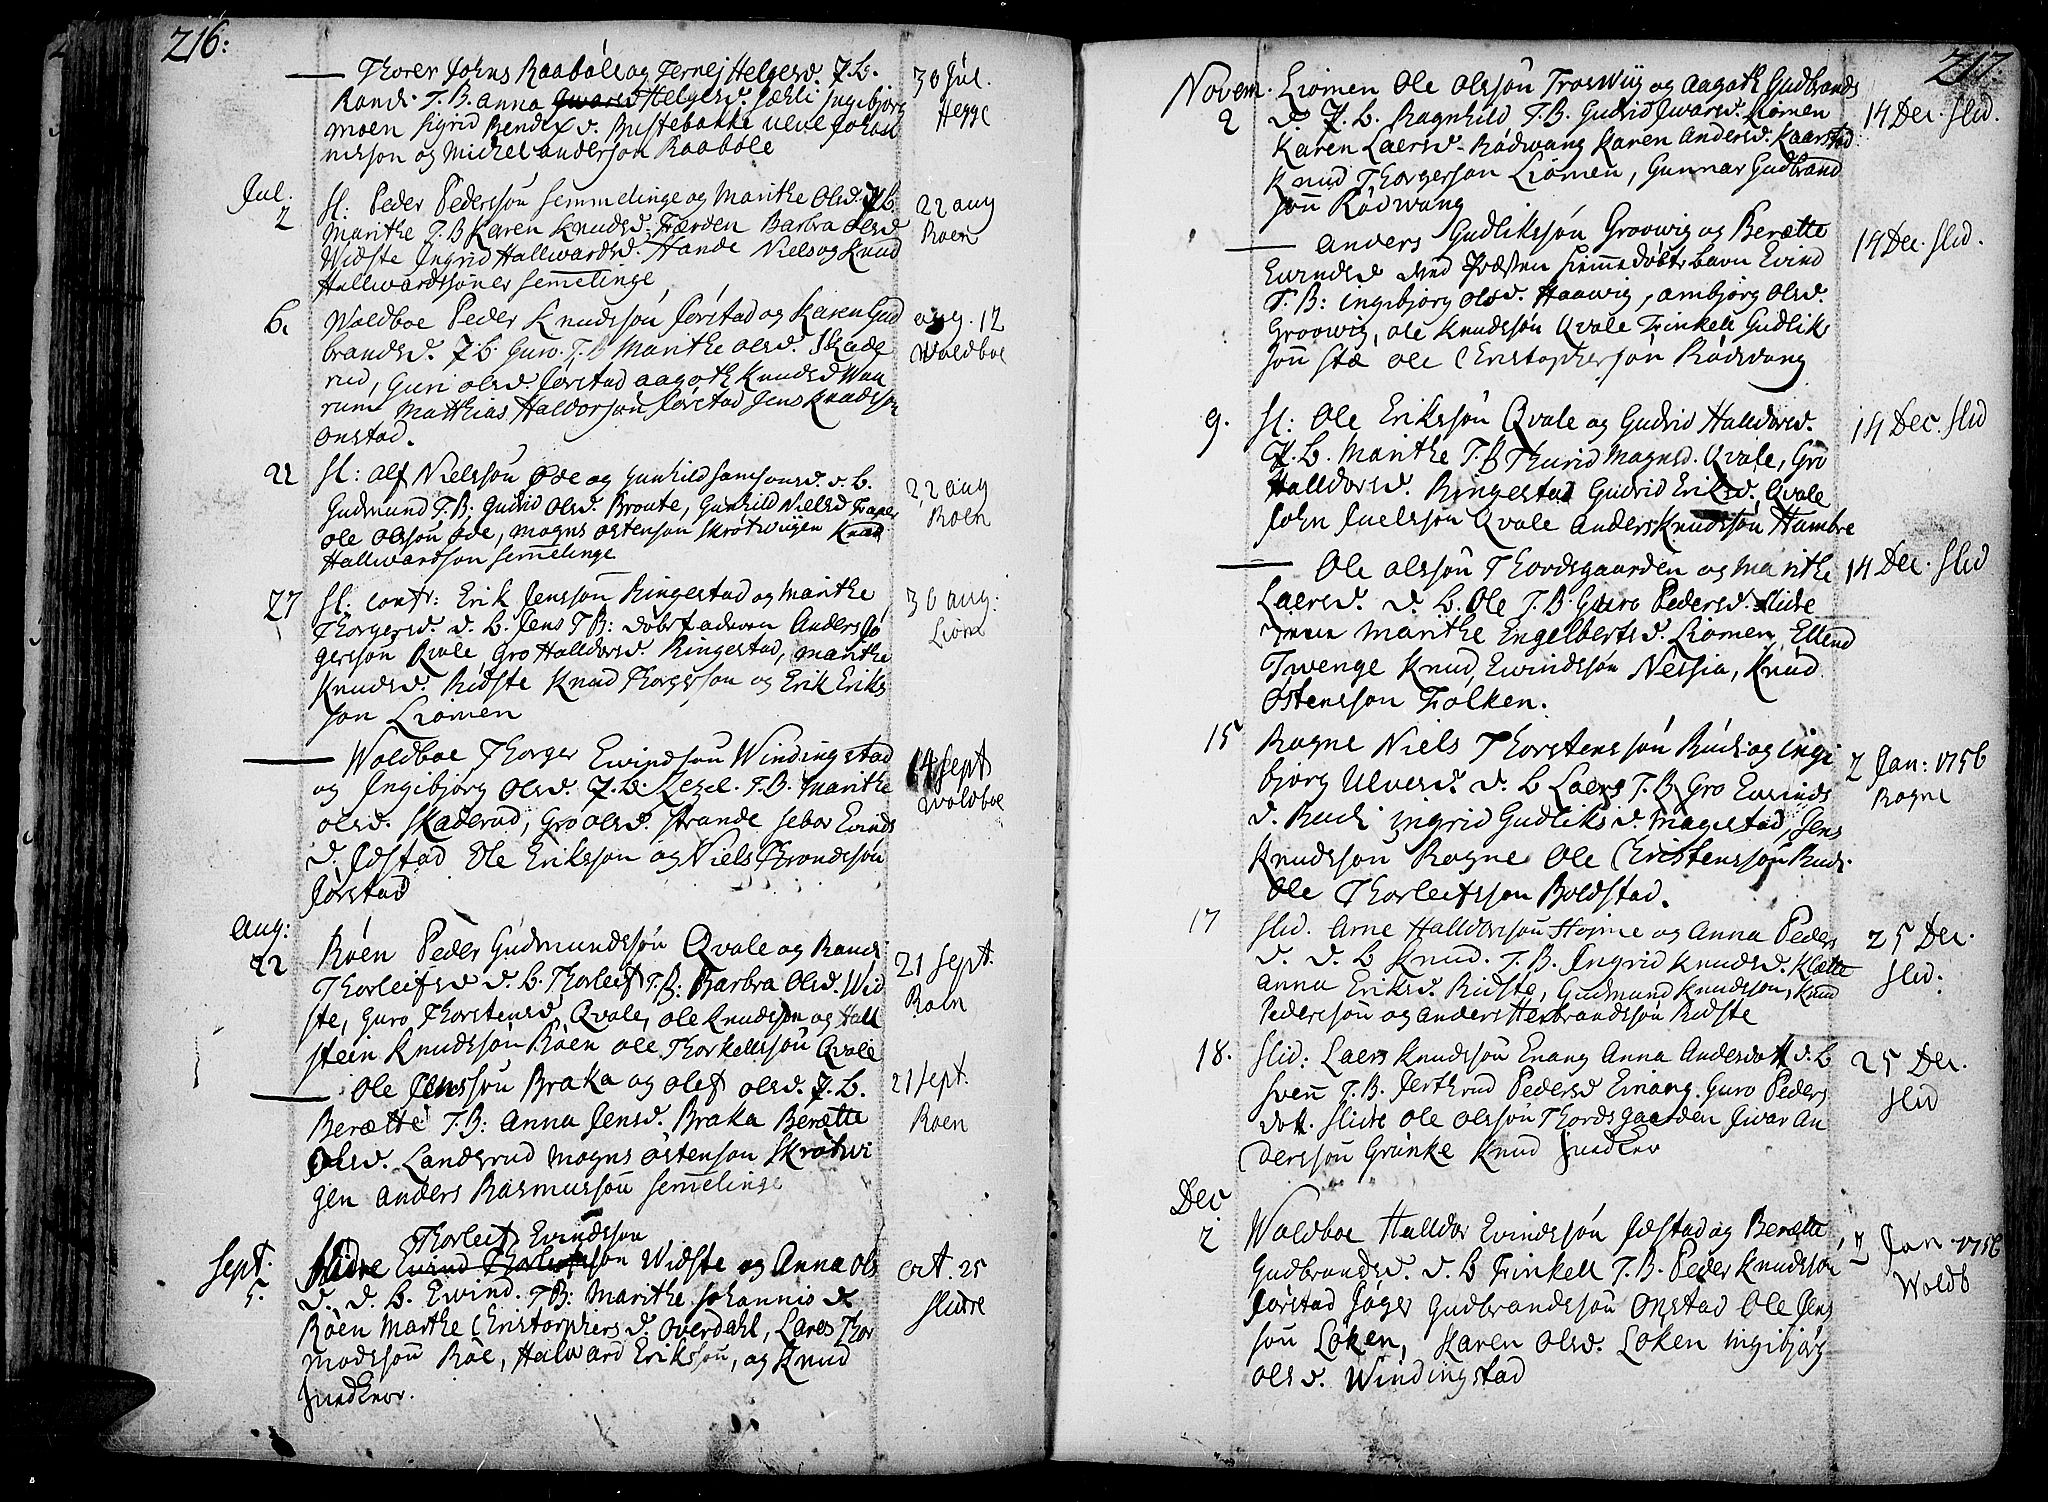 216:
— Thorer Johns Raaböle og Ternej Helgesd. J. B.
Randi T. B. Anna Helgesd. Sæhli Ingebiørg
moen Sigrid Bendtz d. Bustebakke Ulve Johan
nesson og Michel Anderson Raaböle
30 Jul.
Hegge
Jul.
2
Sl: Peder Pedersson Semmelinge og Marithe Olsd. J. B.
Marithe T. B Karen Knudsd. Færden Barbra Olsd.
Widste Ingrid Hallwardsd. Hande Niels og Knud
Hallwardssøner Semelinge
22 aug
Roen
6.
Woldboe Peder Knudssøn Jørstad og Karen Gud
brandsd. J. b. Guro. T. B Marithe Olsd. Skade
rud, Guri Olsd. Jørstad Aagoth Knudsd Wau
rum Matthias Haldorssøn Jørstad Jens Knudsson
Onstad.
aug. 12
Woldboe
22
Sl: Alf Nielssøn Øde og Gunhild Samsonsd. d. B.
Gudmund T. B: Gudrid Olsd. Broute, Gunhild Nielsd
Ole Olssøn Øde, Mogns Østensøn Skrøtwiigen Knud
Hallwardsøn Semelinge
22 aug
Roen
27
Sl: conf: Erik Jenssøn Ringestad og Marithe
Thorgersd. d. B. Jens T B: Anders Jö
gersson Qvale, Gro Halldorsd. Ringestad, Marithe
Knudsd. Ridste Knud Thorgersøn og Erik Eriks
søn Liomen
30 aug:
Liome
— Woldboe Thorger Ewindsøn Windingstad
og Ingibiørg Olsd. J. b: T. B. Marithe
Olsd. Skaderud, Gro Olsd. Strande Sebor Ewinds
d. Jdstad Ole Eriksson og Niels Throndssøn
Jørstad
14 Sept
Woldboe
Aug:
22
Röen Peder Gudmundssøn Qvale og Randi
Thorleifsd d. B. Thorleif T. B: Barbra Olsd. Wid
ste, Guro Thorstensd. Qvale, Ole Knudsøn og Hall
stein Knudsøn Röen Ole Thorkelssøn Qvale
21 Sept.
Roen
— Ole Jenssøn Braka og Olef Olsd. J. B.
Berætte T. B: Anna Jensd. Braka Berætte
Olsd. Landsrud Mogns Østenson Skrøtwi
gen Anders Rasmussøn Semelinge
21 Sept.
Roen
Sept.
5.
Thorleif Ewindsson
Slidre Ewind Thorleifsøn Widste og Anna Ols
d. d. B. Ewind. T. B: Marithe Johannis d.
Röen Marthe Christophers d. Overdahl, Lares Thor
modssøn Röe, Halward Eriksøn, og Knud
oct. 25
Slidre
217.
Novem.
2
Liomen Ole Olssøn Troswiig og Aagoth Gudbrands
d. J. B. Ragnhild T. B. Gudrid Jwarsd. Liomen
Karen Laersd. Rödwang Karen Andersd. Kaarstad
Knud Thorgerson Liomen, Gunnar Gudbrand
søn Rödwang
14 Dec. Slid.
— Anders Gudlikssøn Groowig og Berætte
Ewindsd. ved Præsten hiemmedøbt barn Ewind
T. B: Ingibjörg Olsd. Haawig, Ambjörg Olsd.
Groowig, Ole Knudssøn Qvale Trinkell Gudliks
søn Stæ Ole Christophersøn Rödwang
14 Dec. Slid.
9.
Sl: Ole Erikssøn Qvale og Gudrid Halldorsd.
J. B. Marithe T. B Thurid Magnsd. Qvale, Gro
Halldorsd. Ringestad Gudrid Eriksd. Qvale
John Juelssøn Qvale Anders Knudssøn Hambre
14 Dec Slid
— Ole Olssøn Thordsgaarden og Marithe
Laersd. d. B. Ole T. B. Guro Pedersd. Slidre
Marithe Engelbertsd. Liomen, Ellend
Twenge Knud Ewindssøn Nessia, Knud
Østensson Folken.
14 Dec. Slid
15
Rogne Niels Thorstenssøn Rudi og Ingi
björg Ulvesd. d. B Laers T. B Gro Ewinds
d. Rudi Ingrid Gudliks d. Magistad, Jens
Knudssøn Rogne Ole Christenssøn Rudi
Ole Thorleifsson Boldstad.
2 Jan: 1756
Rogne
17
Slid. Arne Halldorsøn Hojme og Anna Peders
d. d. B Knud. T. B. Ingrid Knudsd. Klætte
Anna Eriksd. Ridste, Gudmund Knudsson, Knud
Pederssøn og Anders Herbrandssøn Ridste
25 Dec.
Slid.
18.
Slid: Laers Knudssøn Enang Anna Andersdott d. B
Sven T. B. Jerthrud Pedersd Einang. Guro Peders
dott. Slidre Ole Olssøn Thordsgaarden Jwar An
derssøn Grönke Knud
25 Dec.
Slid
Dec
2
Woldboe Halldor Ewindssøn Jdstad og Berætte
Gudbrandsd. d. B Trinkell T. B. Peder Knudssøn
Jørstad Jöger Gudbrandssøn Onstad Ole Jens
søn Loken, Karen Olsd. Loken Ingibjörg
Olsd. Windingstad
2 Jan 1756
Woldb